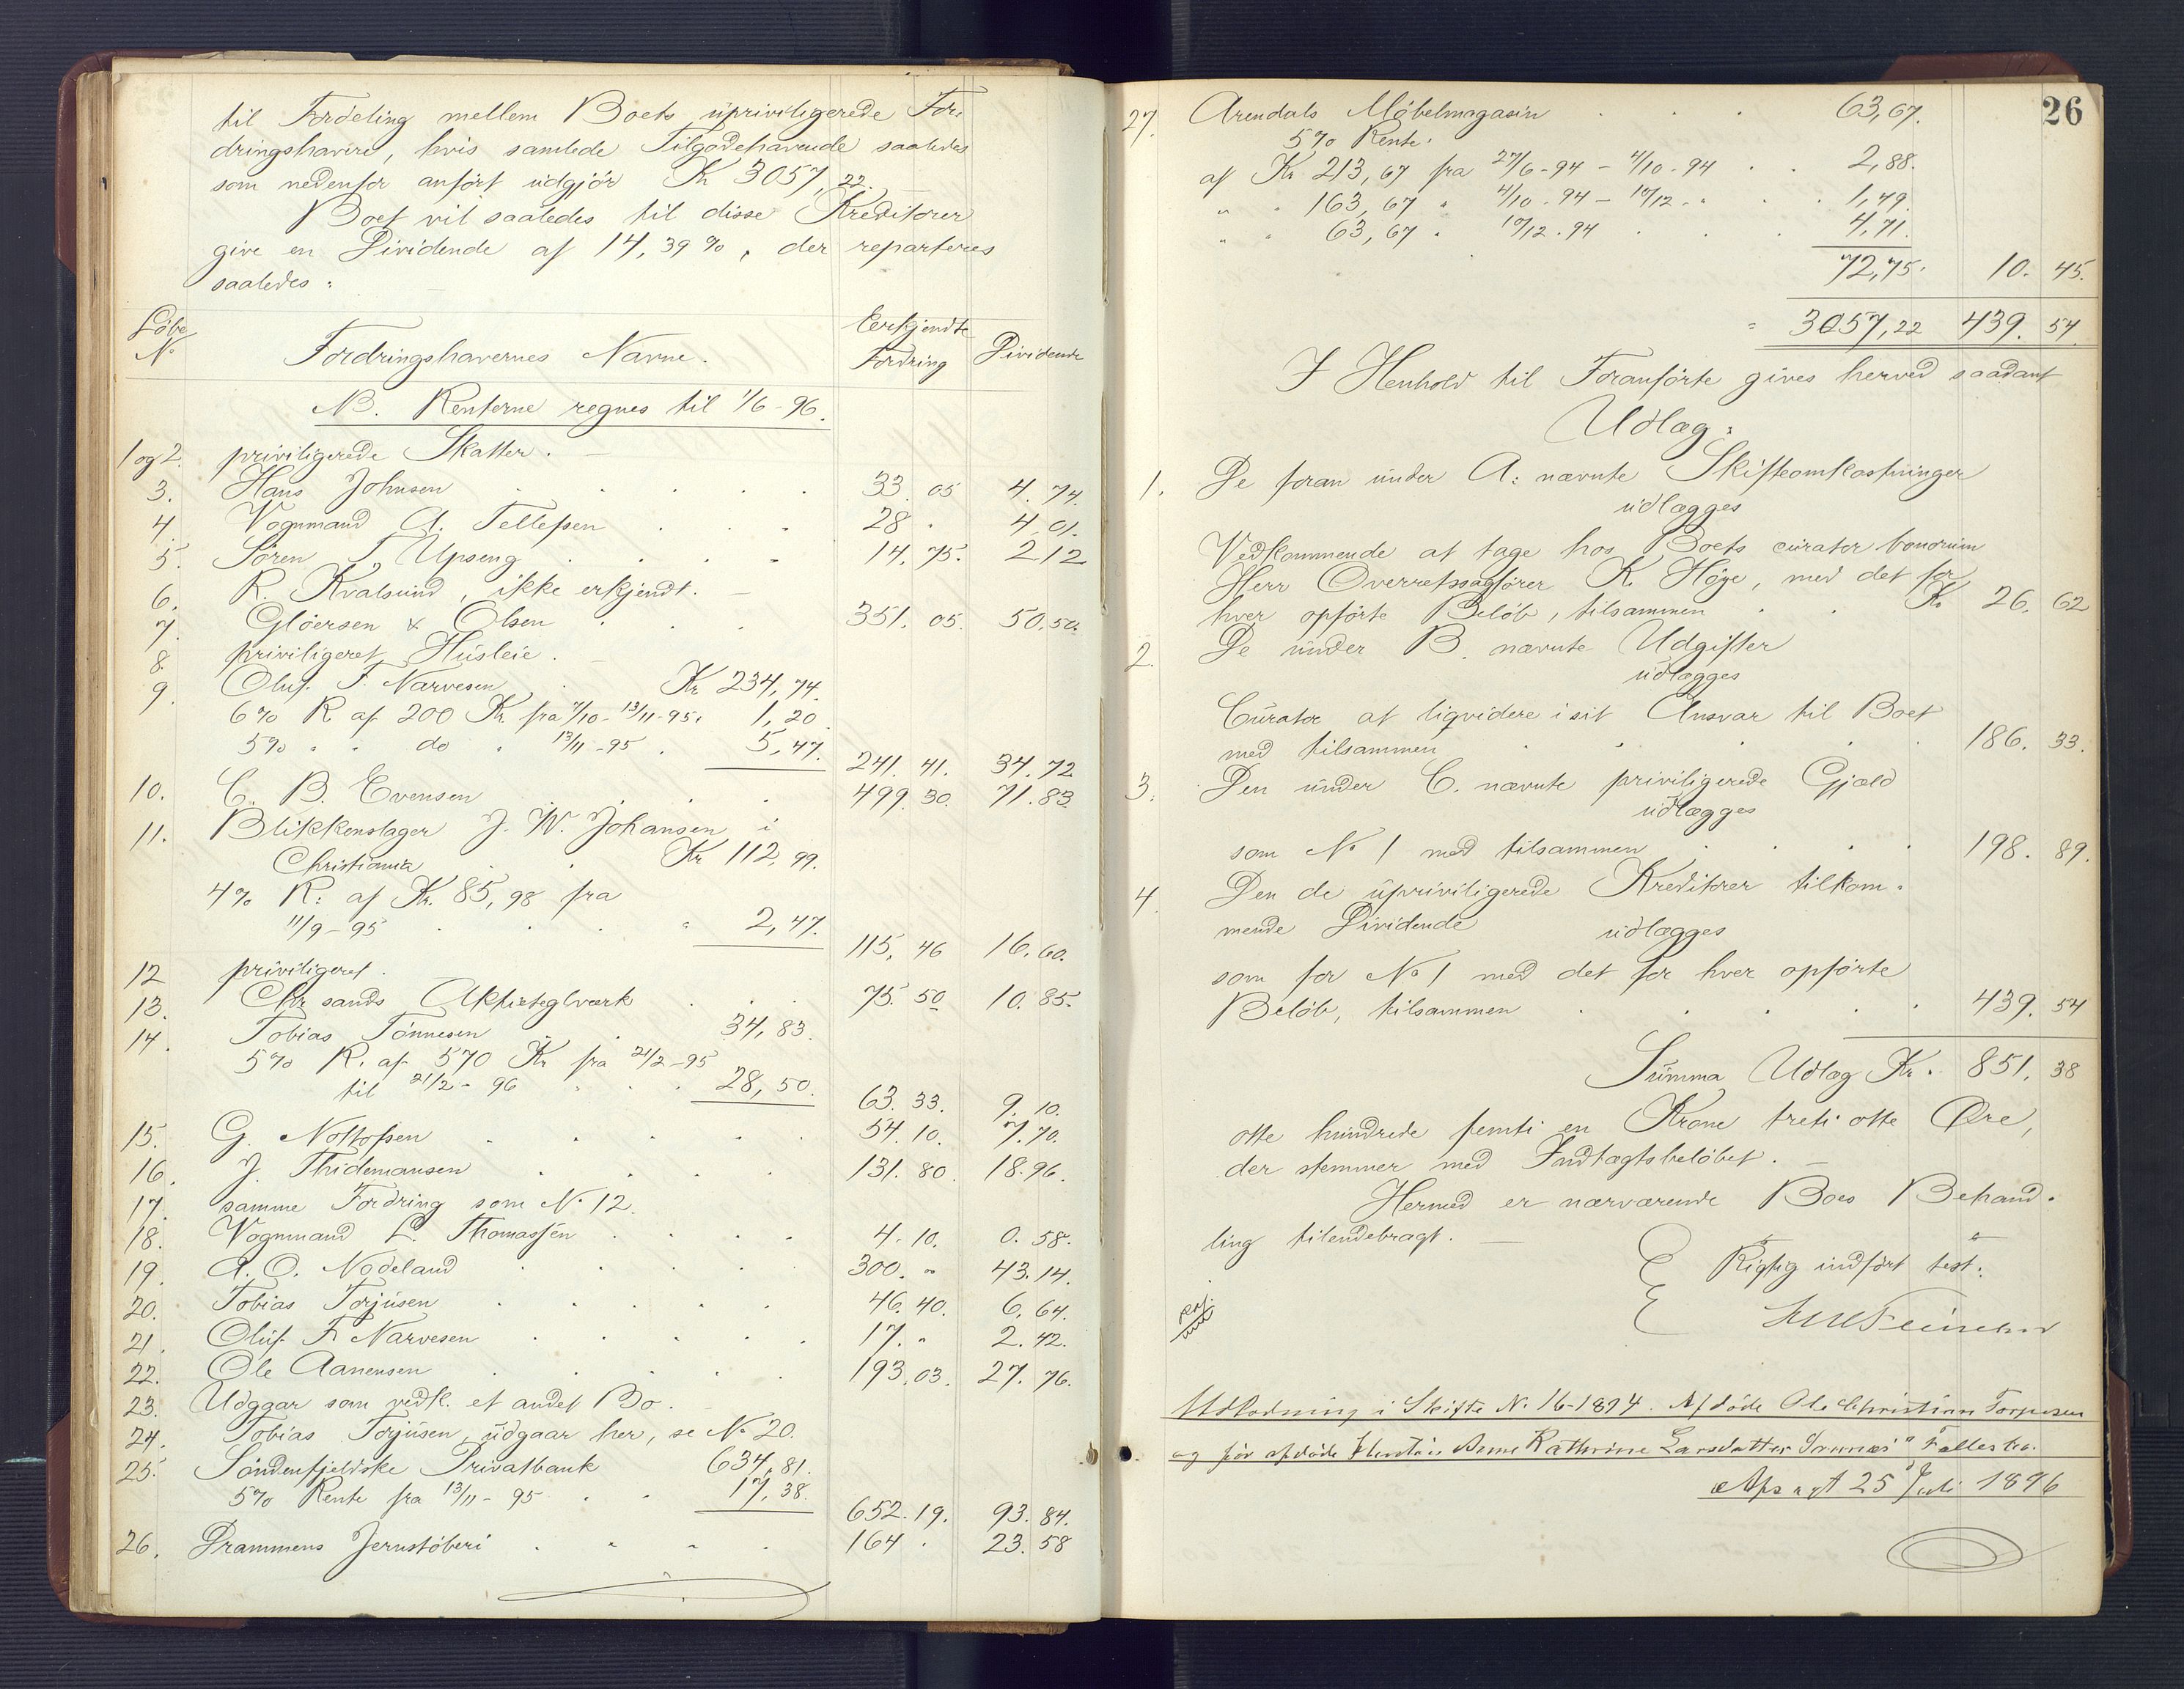 til Fordeling mellem Boets upriviligerede For-
dringshavere, hvis samlede Tilgodehavende saaledes
som nedenfor anført udgjør Kr 3057,22. —
Boet vil saaledes til disse Kreditorer
give en Dividende af 14,39 %, der reparteres
saaledes: —
Løbe No Fordringshavernes Navne. Erkjendte Fordring Dividende
NB. Renterne regnes til 1/6-96.
1 og 2. priviligerede Skatter. —
3. Hans Johnsen 33. 05 4. 74.
4. Vognmand A. Tellefsen 28 . 4. 01.
5. Søren T. Upseng 14. 75. 2 12
6. R. Kvalsund, ikke erkjendt. —
7. Gløersen & Olsen 351. 05. 50. 50.
8. priviligeret Husleie. —
9. Oluf F. Narvesen Kr 234,74.
6% R af 200 Kr fra 7/10-13/11-95. 1,20
5% " " do " 13/11-95. 5,47. 241. 41. 34. 72
10. C. B. Evensen 499. 30. 71. 83.
11. Blikkenslager J. W. Johansen i
Christiania Kr 112,99.
4% R. af Kr. 85,98 fra
11/9-95 " 2,47. 115, 46 16. 60.
12 priviligeret.
13. Chr.sands Aktieteglværk 75. 50 10. 85.
14. Tobias Tønnesen 34,83.
5% R. af 570 Kr fra 21/2-95
til 21/2-96 28,50. 63. 33. 9. 10.
15. G. Nottofsen 54. 10. 7. 70.
16. J. Thidemansen 131. 80. 18. 96.
17. samme Fordring som No 12.
18. Vognmand L. Thomassen 4. 10. 0. 58.
19. A. O. Nodeland 300. " 43. 14.
20. Tobias Torjusen 46. 40. 6. 64.
21. Oluf F. Narvesen 17. " 2. 42.
22. Ole Aanensen 193. 03. 27. 76.
23. Udgaar som vedk. et andet Bo.
24. Tobias Torjusen, udgaar her, se No 20.
25. Søndenfjeldske Privatbank 634,81.
5% Rente fra 13/11-95 17,38. 652. 19. 93. 84.
26. Drammens Jernstøberi 164 . 23. 58
26
27. Arendals Møbelmagasin 63,67.
5% Rente.
af Kr. 213,67 fra 27/6-94 - 4/10-94 2,88.
" " 163,67 " 4/10-94 - 10/12. " 1,49.
" " 63,67 " 10/12.94 4,71.
72,75. 10. 45.
" 3057,22 439. 54.
I Henhold til Foranførte gives herved saadant
Udlæg:
1. De foran under A. nævnte Skifteomkostninger
udlægges
Vedkommende at tage hos Boets curator bonorum
Herr Overretssagfører K. Høye, med det for
hver opførte Beløb, tilsammen Kr 26. 62
2. De under B. nævnte Udgifter
udlægges
Curator at liqvidere i sit Ansvar til Boet
med tilsammen 186. 33.
3. Den under C. nævnte priviligerede Gjæld
udlægges
som No 1 med tilsammen 198. 89.
4. Den de upriviligerede Kreditorer tilkom-
mende Dividende udlægges
som for No 1 med det for hver opførte
Beløb, tilsammen 439. 54
Summa Udlæg Kr. 851, 38
otte hundrede femti en Krone treti otte Øre,
der stemmer med Indtægtsbeløbet. —
Hermed er nærværende Boes Behand-
ling tilendebragt. —
Rigtig indført test:
Udlodning i Skifte No 16-1894. Afdøde Ole Christian Torjusen
og før afdøde Hustru Anne Kathrine Larsdatter Fællesbo.
Afsagt 25 Juli 1896